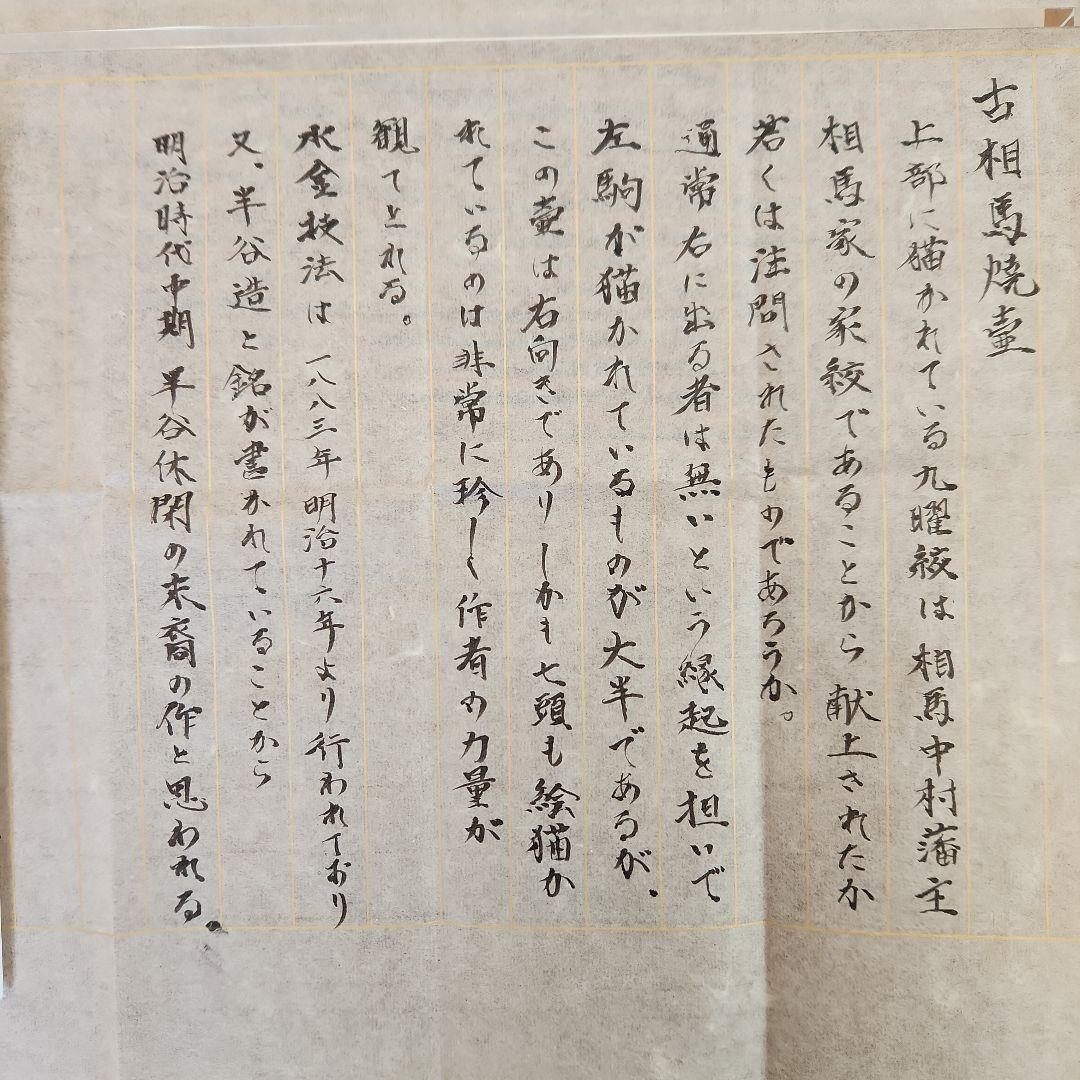 古相馬焼壷
上部に猫かれている九曜絞は相馬中村藩主
相馬家の家絞であることから献上されたか
若くは注問されたものであろうか。
通常右に出る者は無いという縁起を担いで
左駒が猫かれているものが大半であるが、
この壷は右向きでありしかも七頭も絵猫か
れているのは非常に珍しく作者の力量が
観てとれる。
水金技法は一八八三年明治十六年より行われており
又、半谷造と銘が書かれていることから
明治時代中期 半谷休閑の末裔の作と思われる。